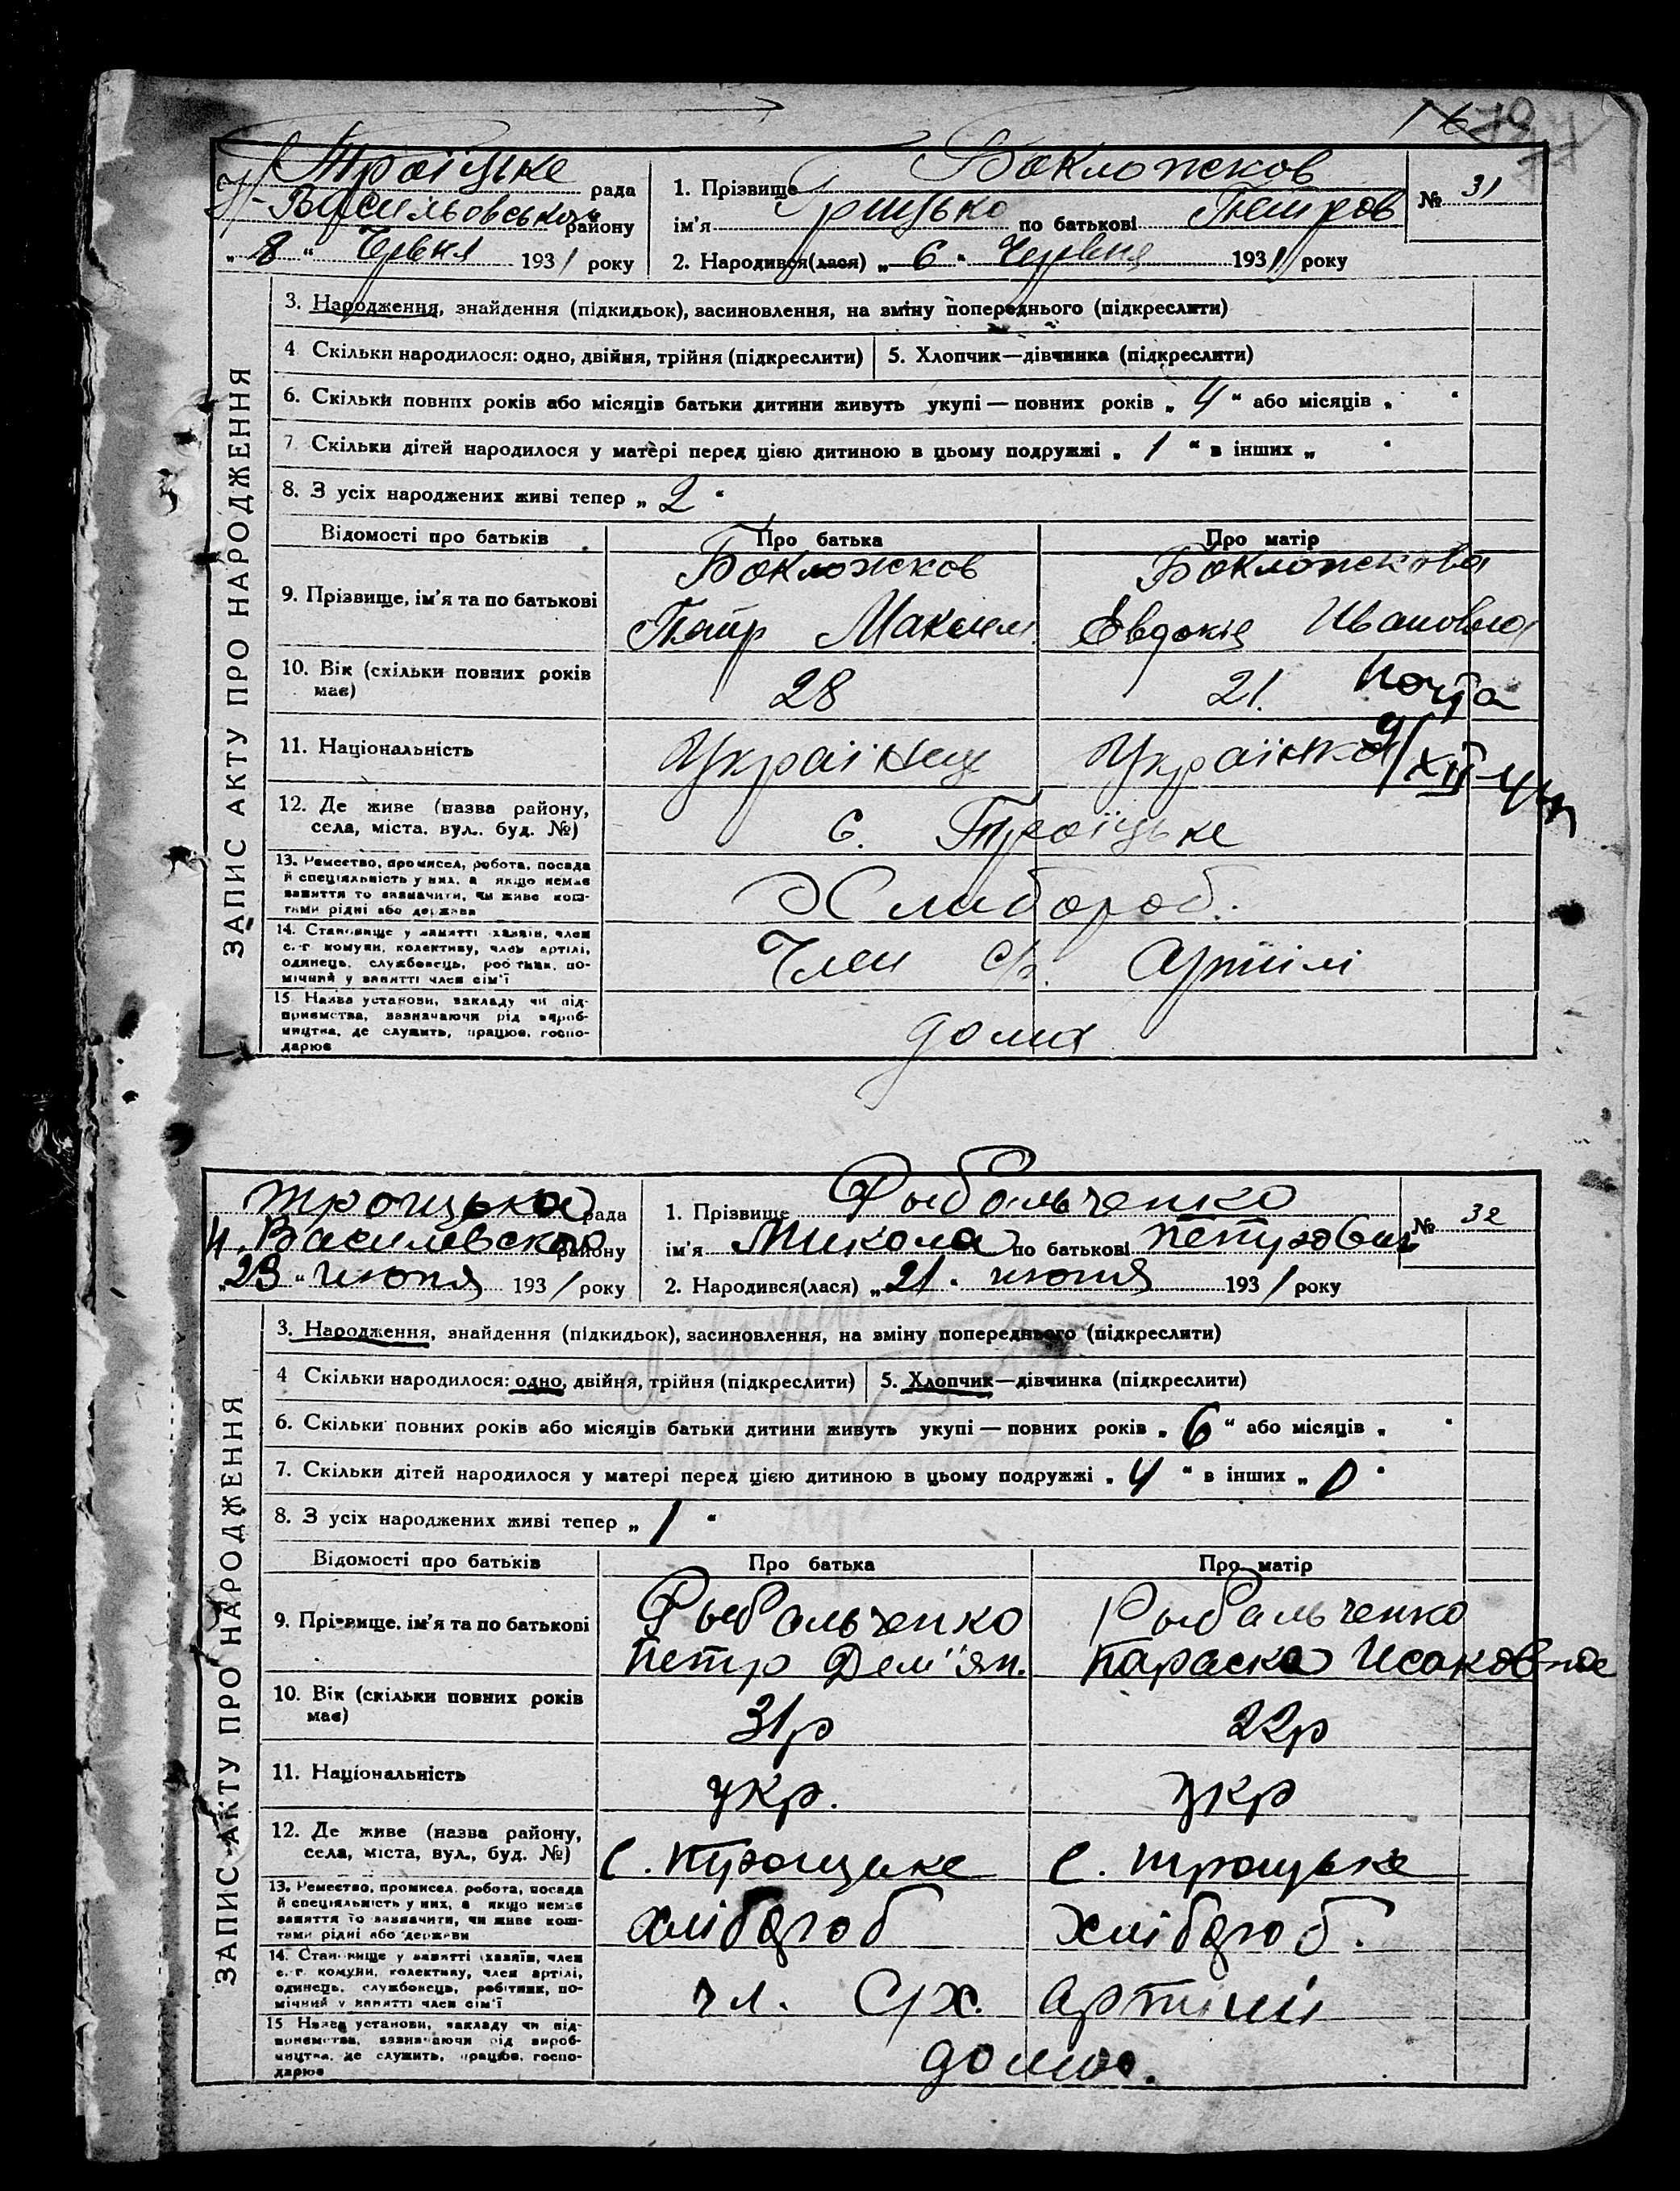 Троїцьке рада
Н-Васильовського району
„ 8 “ Червня 1931 року
1. Прізвище Бокложков
ім'я Грицько по батькові Петров
2. Народився(лася) „ 6 “ Червня 1931 року
№ 31
ЗАПИС АКТУ ПРО НАРОДЖЕННЯ
3. Народження, знайдення (підкидьок), засиновлення, на зміну попереднього (підкреслити)
4 Скільки народилося: одно, двійня, трійня (підкреслити) 5. Хлопчик—дівчинка (підкреслити)
6. Скільки повних років або місяців батьки дитини живуть укупі — повних років „ 4 “ або місяців „ “
7. Скільки дітей народилося у матері перед цією дитиною в цьому подружжі „ 1 “ в інших „ “
8. З усіх народжених живі тепер „ 2 “
Відомості про батьків Про батька Про матір
9. Прізвище, ім'я та по батькові
Бокложков Бокложкова
Петр Максим. Евдокія Ивановна
10. Вік (скільки повних років має) 28 21.
11. Національність Українец Українка
12. Де живе (назва району, села, міста, вул., буд. №) с. Троїцьке
13. Ремество, промисел, робота, посада
й спеціяльність у них, а якщо немає
заняття то зазначити, чи живе кош-
тами рідні або держави
Хлибороб.
14. Становище у занятті хазяїн, член
с.-г. комуни, колективу, член артілі,
одинець, службовець, робітник, по-
мічний у занятті член сім'ї
Член с/г. Артілі
15. Назва установи, закладу чи під-
приємства, зазначаючи рід вироб-
ництва, де служить, працює, госпо-
дарює
дома
Троицька рада
Н. Василевского району
„ 23 “ июня 1931 року
1. Прізвище Рыбальченко
ім'я Микола по батькові Петрович
2. Народився(лася) „ 21 “ июня 1931 року
№ 32
ЗАПИС АКТУ ПРО НАРОДЖЕННЯ
3. Народження, знайдення (підкидьок), засиновлення, на зміну попереднього (підкреслити)
4 Скільки народилося: одно, двійня, трійня (підкреслити) 5. Хлопчик—дівчинка (підкреслити)
6. Скільки повних років або місяців батьки дитини живуть укупі — повних років „ 6 “ або місяців „ “
7. Скільки дітей народилося у матері перед цією дитиною в цьому подружжі „ 4 “ в інших „ 0 “
8. З усіх народжених живі тепер „ 1 “
Відомості про батьків Про батька Про матір
9. Прізвище, ім'я та по батькові
Рыбальченко Рыбальченко
Петр Дем"ян. Параска Исаковна
10. Вік (скільки повних років має) 31р 22р
11. Національність укр. укр
12. Де живе (назва району, села, міста, вул., буд. №) с. Троицьке с. Троицьке
13. Ремество, промисел, робота, посада
й спеціяльність у них, а якщо немає
заняття то зазначити, чи живе кош-
тами рідні або держави
хлібороб хлібороб.
14. Становище у занятті хазяїн, член
с.-г. комуни, колективу, член артілі,
одинець, службовець, робітник, по-
мічний у занятті член сім'ї
чл. с/х. артили
15 Назва установи, закладу чи під-
приємства, зазначаючи рід вироб-
ництва, де служить, працює, госпо-
дарює
дома.